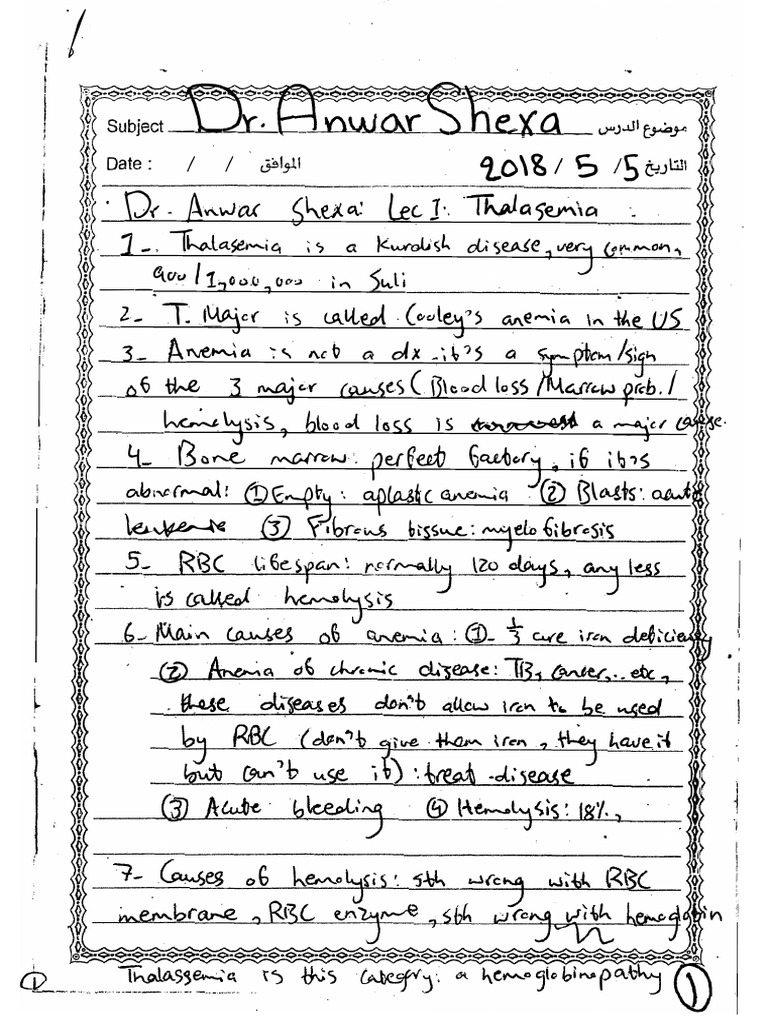 Subject Dr. Anwar Shexa موضوع الدرس
Date : / / الموافق 2018 / 5 / 5 التاريخ
Dr. Anwar Shexa: Lec 1: Thalasemia
1-. Thalasemia is a Kurdish disease, very common,
900/1,000,000 in Suli
2- T. Major is called Cooley's anemia in the US
3- Anemia is not a dx - it's a symptom/sign
of the 3 major causes (Blood loss/Marrow prob./
hemolysis, blood loss is a major cause.
4- Bone marrow: perfect factory, if it's
abnormal: ① Empty: aplastic anemia ② Blasts: acute
leukemia ③ Fibrous tissue: myelofibrosis
5- RBC lifespan: normally 120 days, any less
is called hemolysis
6- Main causes of anemia: ①- 1/3 are iron deficiency
② Anemia of chronic disease: TB, cancer,.. etc,
these diseases don't allow iron to be used
by RBC (don't give them iron, they have it
but can't use it): treat disease
③ Acute bleeding ④ Hemolysis: 18%,
7- Causes of hemolysis: sth wrong with RBC
membrane, RBC enzyme, sth wrong with hemoglobin
① Thalassemia is this category: a hemoglobinopathy ①